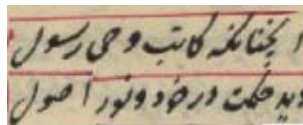 آنچنانکه کاتب وحی رسول
دید حکمت در خود و نور اصول